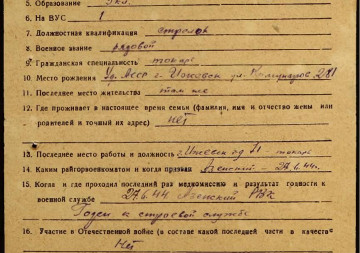 5. Образование 5 кл.
6. На ВУС 1
7. Должностная квалификация стрелок
8. Военное звание рядовой
9. Гражданская специальность токарь
10. Место рождения Уд. АССР г. Ижевск ул. 281
11. Последнее место жительства там же
12. Где проживает в настоящее время семья (фамилия, имя и отчество жены или
родителей и точный их адрес) Нет
13. Последнее место работы и должность: Ижевск - токарь
14. Каким райгорвоенкоматом и когда призван Азенский - 27.6.44г.
15. Когда и где проходил последний раз медкомиссию и результат годности к
военной службе 27.6.44 Азенский РВК
Годен к строевой службе
16. Участие в Отечественной войне (в составе какой последней части в качеств
Нет